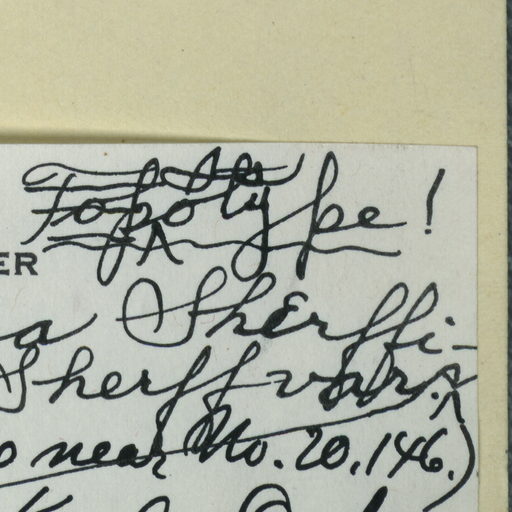 Topotype!
ER
a Sherffi-
Sherff
near No. 20,146.)